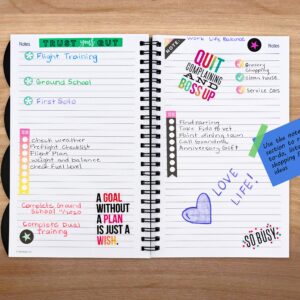 Notes
TRUST YOUR GUT
Flight Training
Ground School
First Solo
Check weather
Preflight Checklist
Flight Plan
Weight and balance
Check fuel level
Complete Ground
School
Complete Dual
Training
A GOAL
WITHOUT
A PLAN
IS JUST A
WISH.
Work Life Balance
Notes
NOTE
QUIT
COMPLAINING
AND
BOSS UP
Grocery
Shopping
Clean house
Service Cats
Find earring
Take Fido to vet
Paint dining room
Call
Anniversary Gift!
LOVE
LIFE!
Use the note
section to
to-do
shopping
ideas
SO BUSY